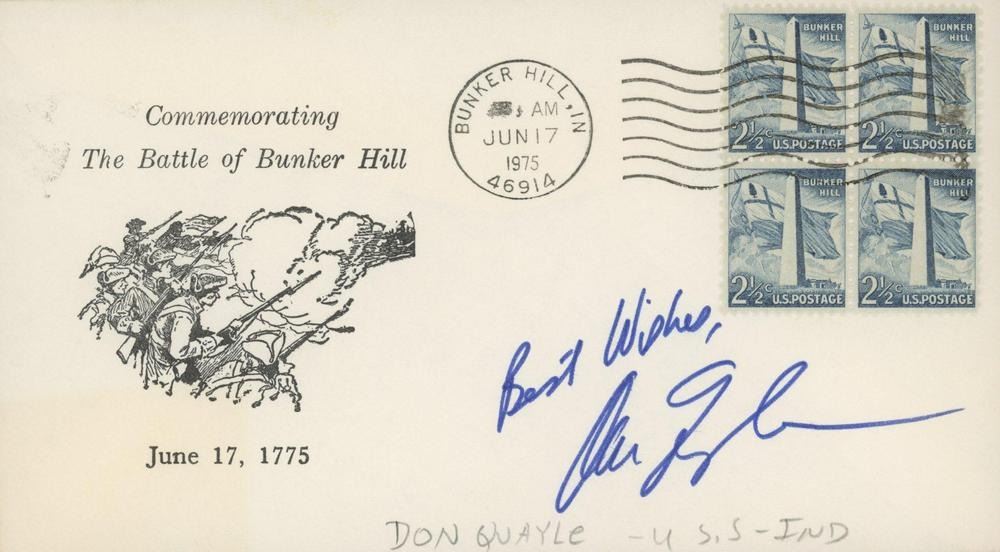 Commemorating
The Battle of Bunker Hill
June 17, 1775
BUNKER HILL, IN
AM
JUN 17
1975
46914
BUNKER HILL
2½c U.S.POSTAGE
BUNKER HILL
2½c U.S.POSTAGE
BUNKER HILL
2½c U.S.POSTAGE
BUNKER HILL
2½c U.S.POSTAGE
Best Wishes,
DON QUAYLE - U S.S - IND